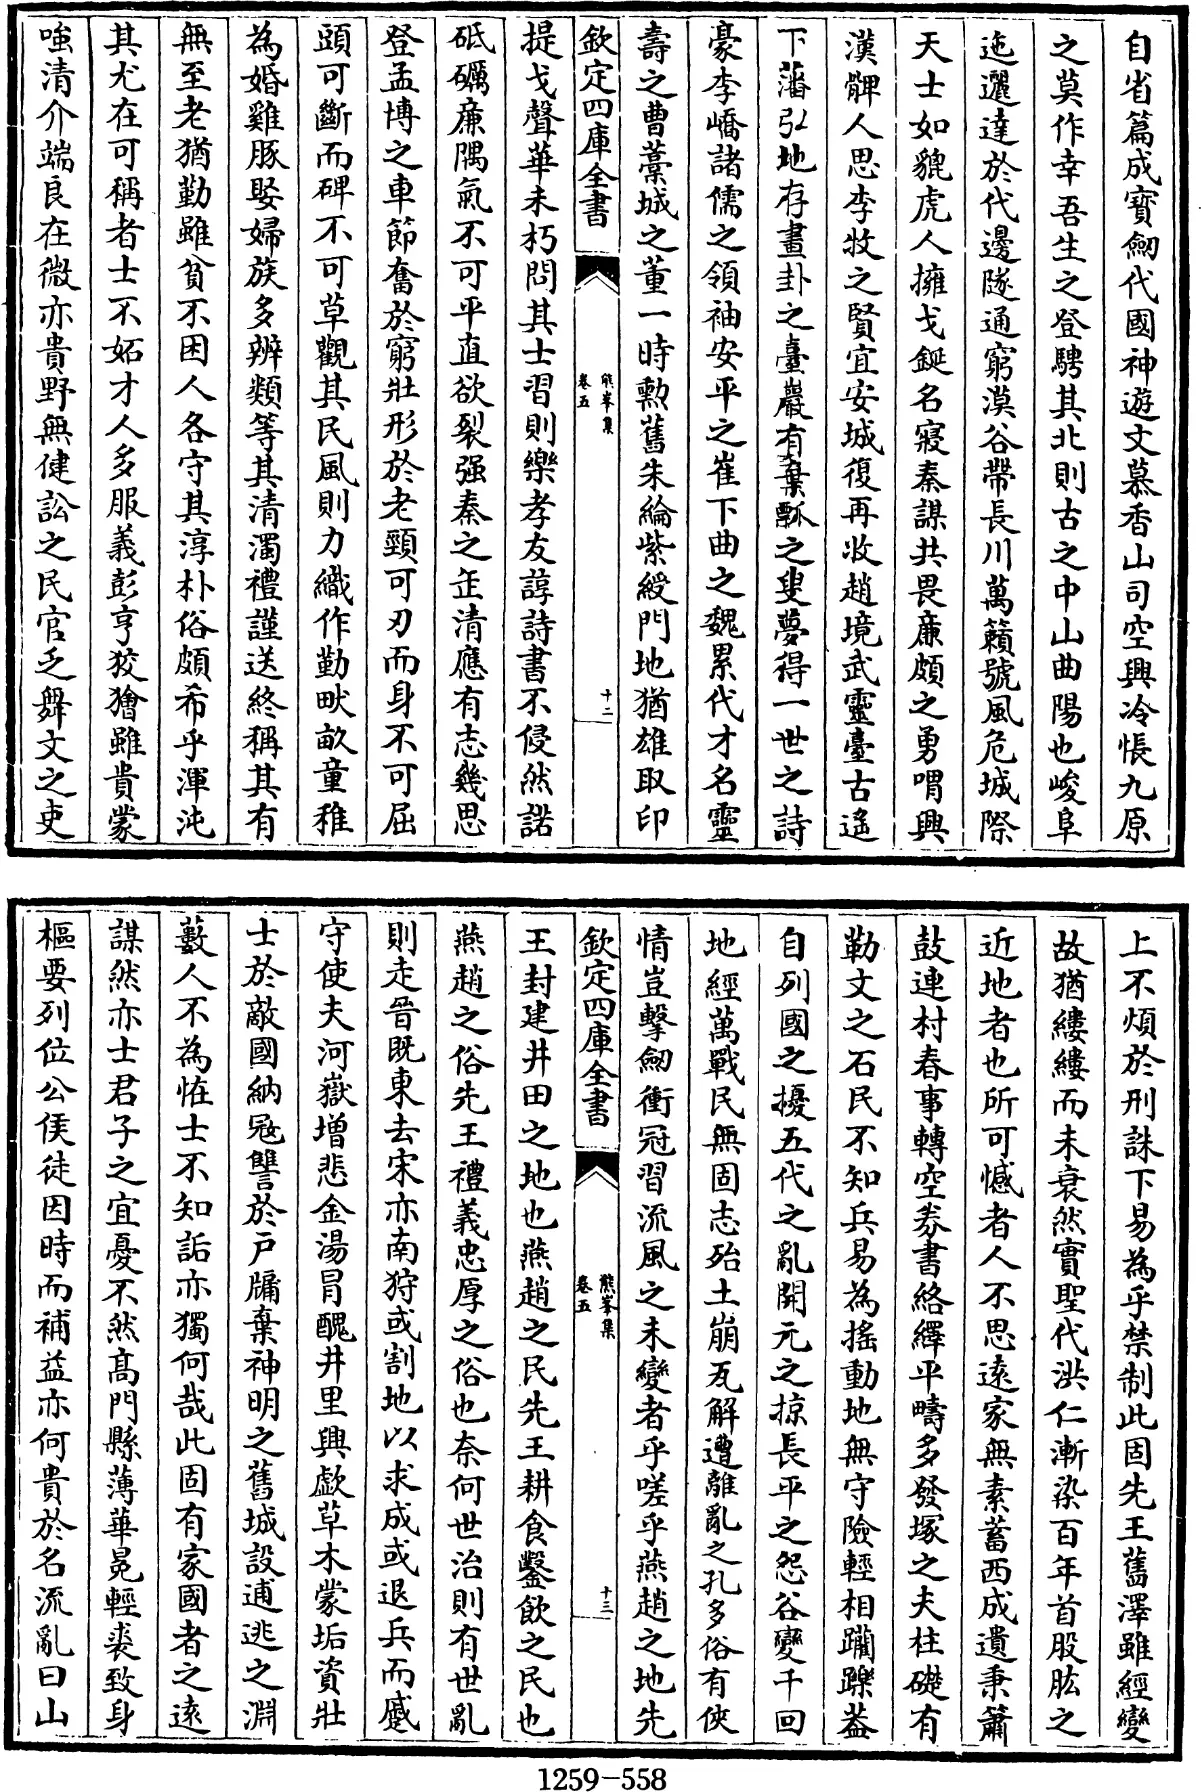 自省篇成寶劒代國神遊文慕香山司空興冷悵九原
之莫作幸吾生之登騁其北則古之中山曲陽也峻阜
迤邐達於代邊隧通窮漠谷帶長川萬籟號風危城際
天士如貔虎人擁戈鋋名寢秦謀共畏廉頗之勇喟興
漢髀人思李牧之賢宜安城復再收趙境武靈臺古遙
下藩引地存畫卦之臺巖有棄瓢之叟夢得一世之詩
豪李嶠諸儒之領袖安平之崔下曲之魏累代才名靈
壽之曹藁城之董一時勲舊朱綸紫綬門地猶雄取印
欽定四庫全書
熊峯集
卷五
十二
提戈聲華未朽問其士習則樂孝友諄詩書不侵然諾
砥礪廉隅氣不可平直欲裂强秦之缶清應有志幾思
登孟博之車節奮於窮壯形於老頸可刃而身不可屈
頭可斷而碑不可草觀其民風則力織作勤畎畝童稚
為婚雞豚娶婦族多辨類等其清濁禮謹送終稱其有
無至老猶勤雖貧不困人各守其淳朴俗頗希乎渾沌
其尤在可稱者士不妬才人多服義彭亨狡獪雖貴蒙
嗤清介端良在微亦貴野無健訟之民官乏舞文之吏
上不煩於刑誅下易為乎禁制此固先王舊澤雖經變
故猶縷縷而未衰然實聖代洪仁漸染百年首股肱之
近地者也所可憾者人不思遠家無素蓄西成遺秉簫
鼓連村春事轉空券書絡繹平疇多發塚之夫柱礎有
勒文之石民不知兵易為搖動地無守險輕相躪躒葢
自列國之擾五代之亂開元之掠長平之怨谷變千回
地經萬戰民無固志殆土崩瓦解遭離亂之孔多俗有俠
情豈擊劒衝冠習流風之未變者乎嗟乎燕趙之地先
欽定四庫全書
熊峯集
卷五
十三
王封建井田之地也燕趙之民先王耕食鑿飲之民也
燕趙之俗先王禮義忠厚之俗也奈何世治則有世亂
則走晉既東去宋亦南狩或割地以求成或退兵而蹙
守使夫河嶽增悲金湯冐醜井里興歔草木蒙垢資壯
士於敵國納冦讐於戶牖棄神明之舊城設逋逃之淵
藪人不為怪士不知詬亦獨何哉此固有家國者之遠
謀然亦士君子之宜憂不然髙門縣薄華晃輕裘致身
樞要列位公侯徒因時而補益亦何貴於名流亂曰山
1259-558